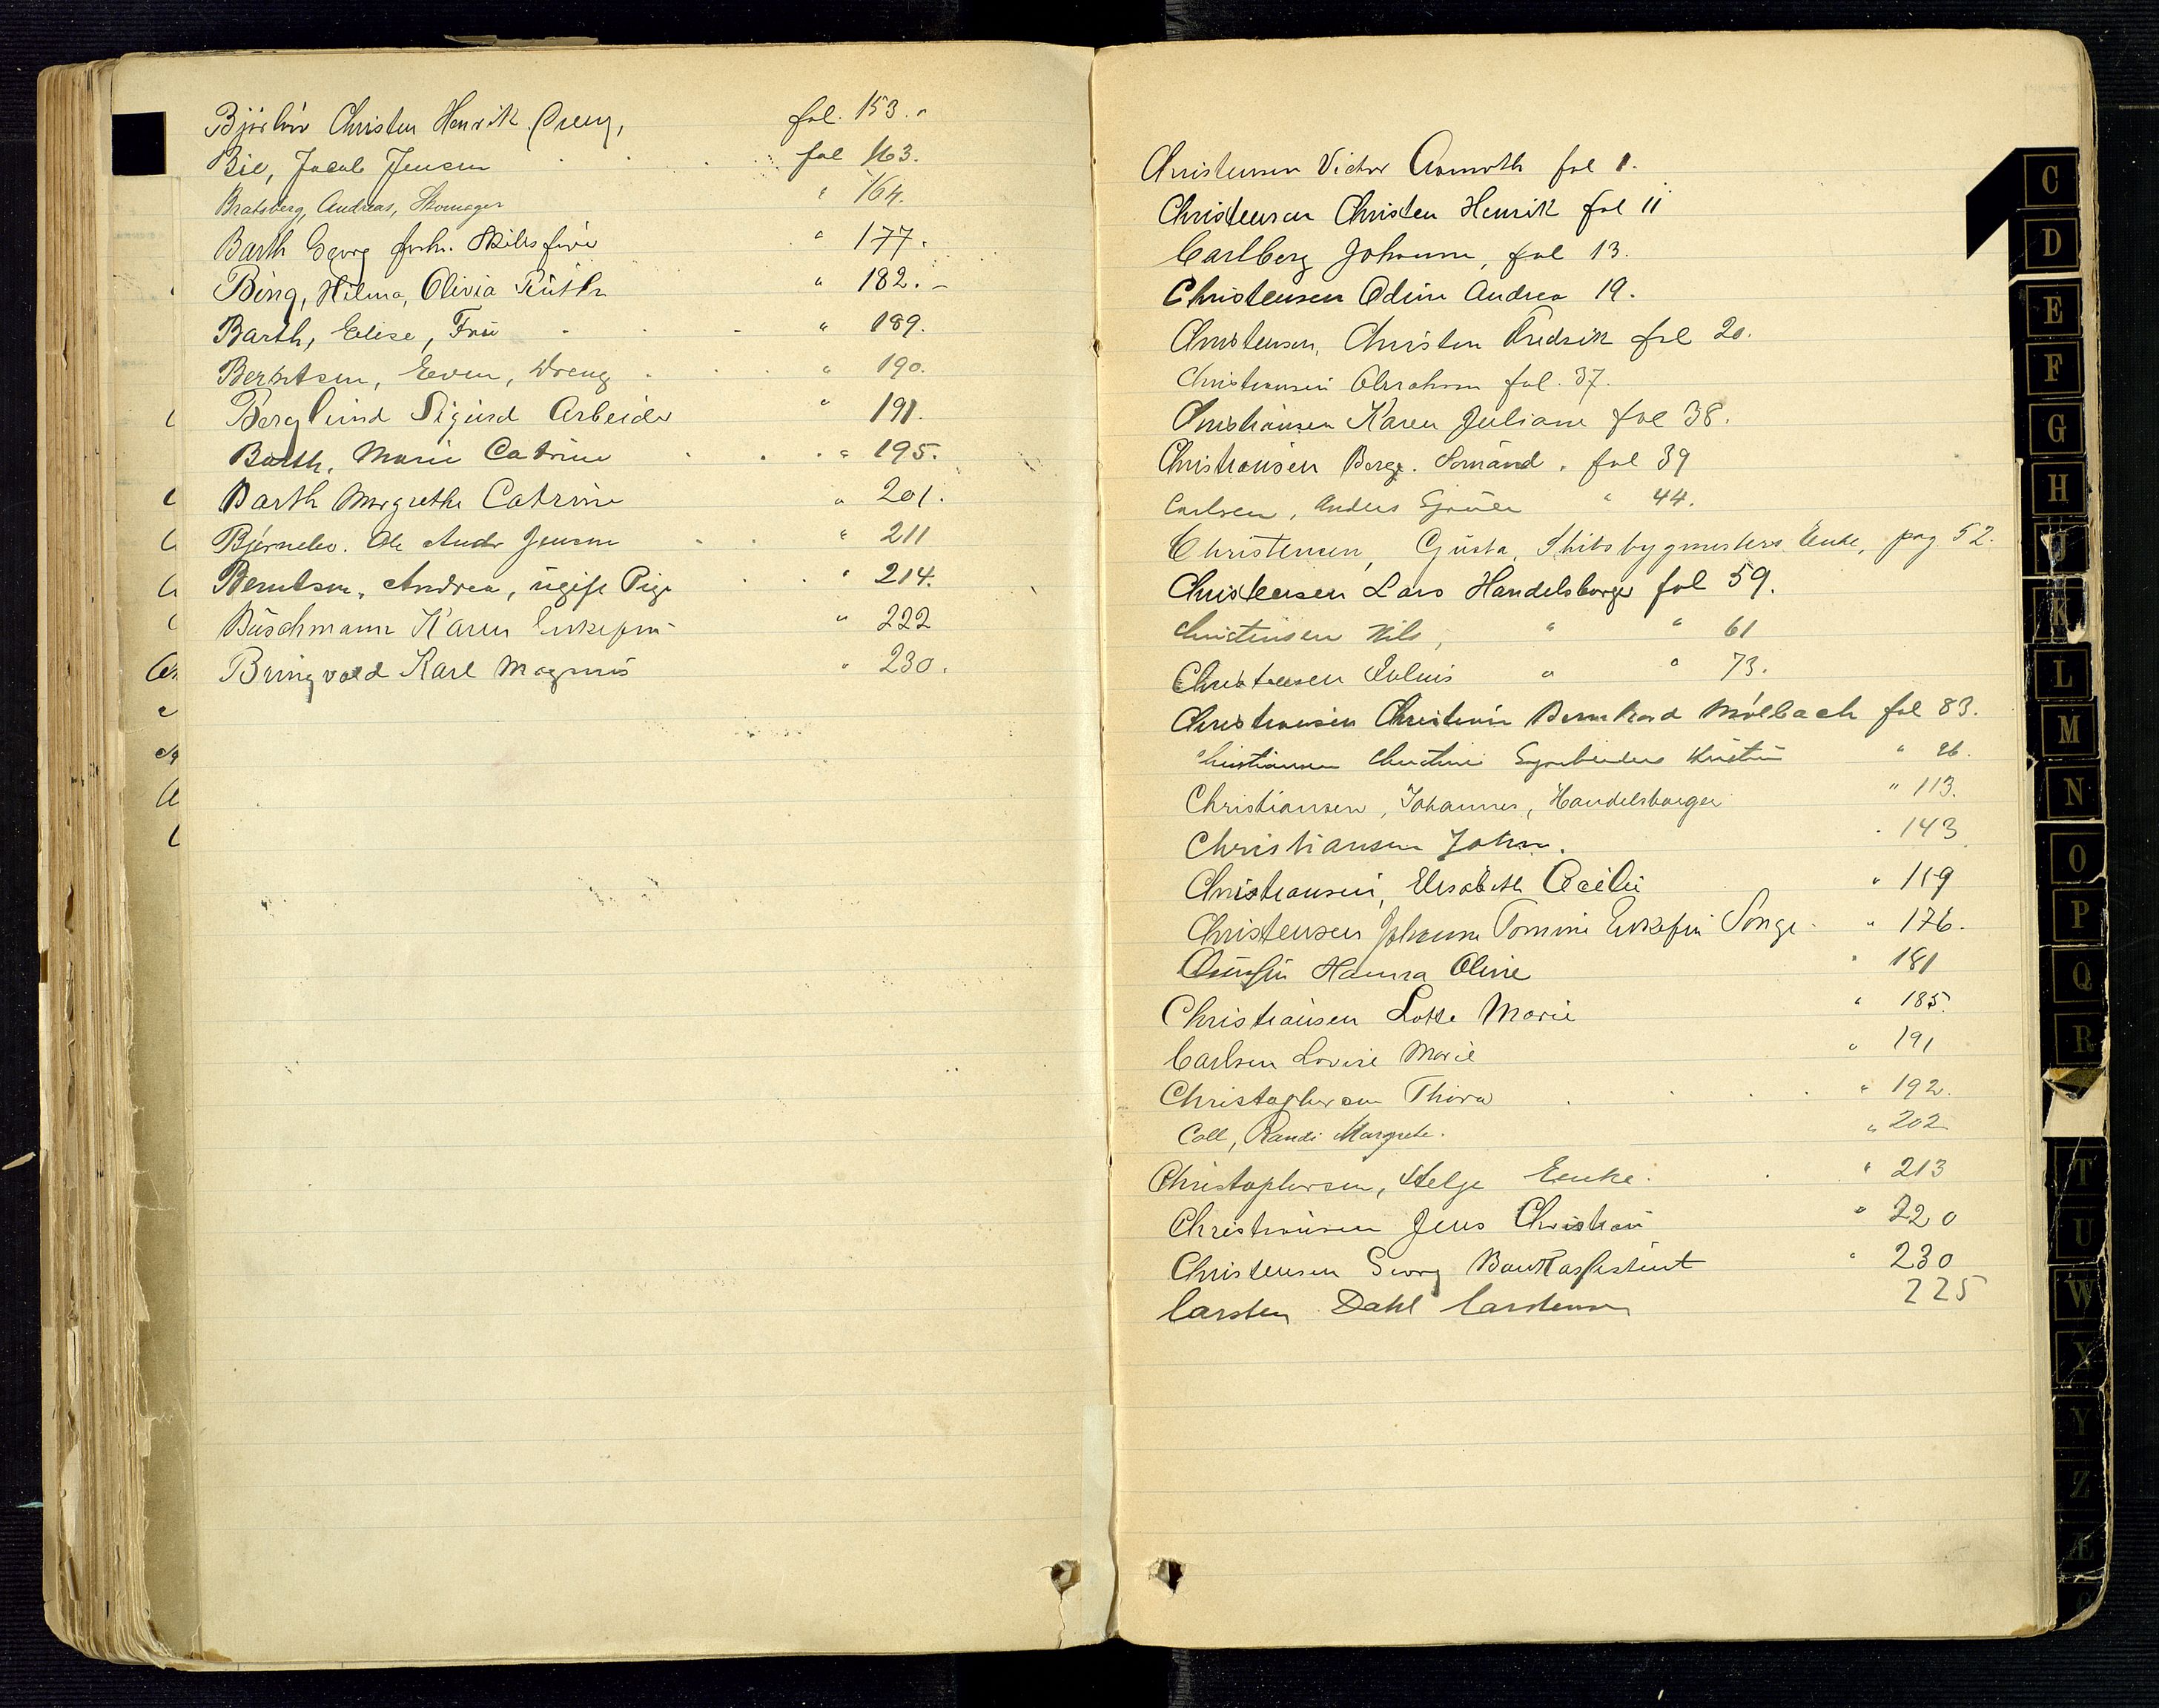 Christen Henrik
fol. 153.
Bie, Jacob Jensen
fol 163.
Bratsberg, Andreas, Skomager
" 164.
Barth Georg forh. Skibsfører
" 177.
Bing, Hilma, Olivia Ruth
" 182. -
Barth, Elise, Frü
" 189.
Berntsen, Even, Dreng
" 190.
Berglund Sigurd Arbeider
" 191.
Barth, Marie Catrine
" 195.
Barth Margrethe Catrine
" 201.
Bjørnebo. Ole Andr Jensen
" 211
Berntsen, Andrea, ugift Pige
" 214.
Büschmann Karen Enkefrü
" 222
Bringvold Karl Magnus
" 230.
Christensen Victor fol 1.
Christensen Christen Henrik fol 11
Carlberg Johanne, fol 13.
Christensen Odine Andrea 19.
Christensen, Christen Fredrik fol 20.
Christiansen Abraham fol. 37.
Christiansen Karen Juliane fol 38.
Christiansen Somand. fol 39
Carlsen, Anders " 44.
Christensen, Gusta, Skibsbygmesters Enke, pag. 52.
Christensen Lars Handelsborger fol 59.
Christensen Nils, " " 61
Christensen Julius " " 73.
Christiansen Christian Bernhard Mölbach fol 83.
Christiansen
Christiansen, Johannes, Handelsborger " 113.
Christiansen John. 143
Christiansen, Elisabeth Cecilie " 119
Christensen Johanne Tomine Enkefrü Songe " 176.
Hanna Oline " 181
Christiansen Lotte Marie " 185.
Carlsen Lovise Marie " 191
Christophersen Thora " 192.
Coll, Randi Margrete. " 202
Christophersen, Helge Enke. " 213
Christiansen Jens Christian " 220
Christensen Georg Bankassistent " 230
Carsten Dahl Carstensen 225
C
D
E
F
G
H
J
K
L
M
N
O
P
Q
R
T
U
W
X
Y
Z
Æ